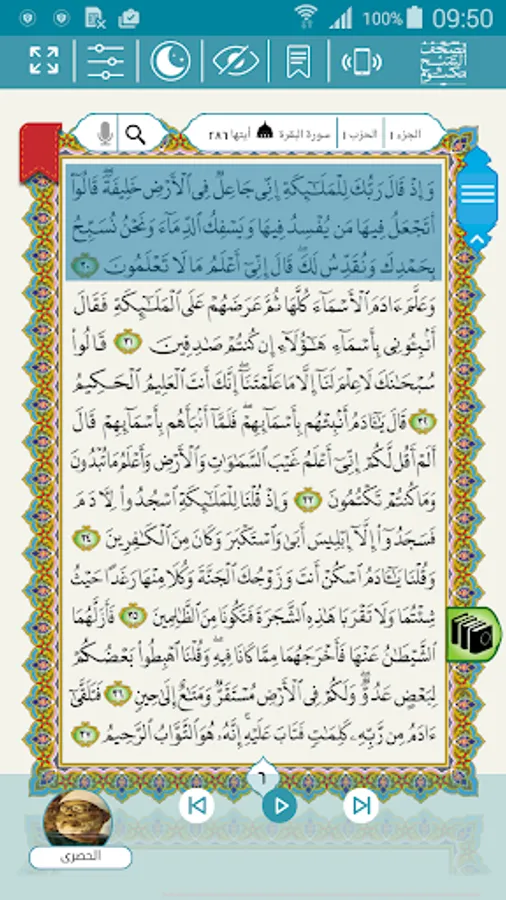 100% 09:50
مصحف
الشيخ
مكتوم
الجزء ١ الحزب ١ سورة البقرة آيتها ٢٨٦
وَإِذْ قَالَ رَبُّكَ لِلْمَلَـٰٓئِكَةِ إِنِّى جَاعِلٌ فِى ٱلْأَرْضِ خَلِيفَةً ۖ قَالُوٓا۟
أَتَجْعَلُ فِيهَا مَن يُفْسِدُ فِيهَا وَيَسْفِكُ ٱلدِّمَآءَ وَنَحْنُ نُسَبِّحُ
بِحَمْدِكَ وَنُقَدِّسُ لَكَ ۖ قَالَ إِنِّىٓ أَعْلَمُ مَا لَا تَعْلَمُونَ ٣٠
وَعَلَّمَ ءَادَمَ ٱلْأَسْمَآءَ كُلَّهَا ثُمَّ عَرَضَهُمْ عَلَى ٱلْمَلَـٰٓئِكَةِ فَقَالَ
أَنۢبِـُٔونِى بِأَسْمَآءِ هَـٰٓؤُلَآءِ إِن كُنتُمْ صَـٰدِقِينَ ٣١ قَالُوا۟
سُبْحَـٰنَكَ لَا عِلْمَ لَنَآ إِلَّا مَا عَلَّمْتَنَآ ۖ إِنَّكَ أَنتَ ٱلْعَلِيمُ ٱلْحَكِيمُ
٣٢ قَالَ يَـٰٓـَٔادَمُ أَنۢبِئْهُم بِأَسْمَآئِهِمْ ۖ فَلَمَّآ أَنۢبَأَهُم بِأَسْمَآئِهِمْ قَالَ
أَلَمْ أَقُل لَّكُمْ إِنِّىٓ أَعْلَمُ غَيْبَ ٱلسَّمَـٰوَٰتِ وَٱلْأَرْضِ وَأَعْلَمُ مَا تُبْدُونَ
وَمَا كُنتُمْ تَكْتُمُونَ ٣٣ وَإِذْ قُلْنَا لِلْمَلَـٰٓئِكَةِ ٱسْجُدُوا۟ لِـَٔادَمَ
فَسَجَدُوٓا۟ إِلَّآ إِبْلِيسَ أَبَىٰ وَٱسْتَكْبَرَ وَكَانَ مِنَ ٱلْكَـٰفِرِينَ ٣٤
وَقُلْنَا يَـٰٓـَٔادَمُ ٱسْكُنْ أَنتَ وَزَوْجُكَ ٱلْجَنَّةَ وَكُلَا مِنْهَا رَغَدًا حَيْثُ
شِئْتُمَا وَلَا تَقْرَبَا هَـٰذِهِ ٱلشَّجَرَةَ فَتَكُونَا مِنَ ٱلظَّـٰلِمِينَ ٣٥ فَأَزَلَّهُمَا
ٱلشَّيْطَـٰنُ عَنْهَا فَأَخْرَجَهُمَا مِمَّا كَانَا فِيهِ ۖ وَقُلْنَا ٱهْبِطُوا۟ بَعْضُكُمْ
لِبَعْضٍ عَدُوٌّ ۖ وَلَكُمْ فِى ٱلْأَرْضِ مُسْتَقَرٌّ وَمَتَـٰعٌ إِلَىٰ حِينٍ ٣٦ فَتَلَقَّىٰٓ
ءَادَمُ مِن رَّبِّهِۦ كَلِمَـٰتٍ فَتَابَ عَلَيْهِ ۚ إِنَّهُۥ هُوَ ٱلتَّوَّابُ ٱلرَّحِيمُ ٣٧
٦
الحصرى